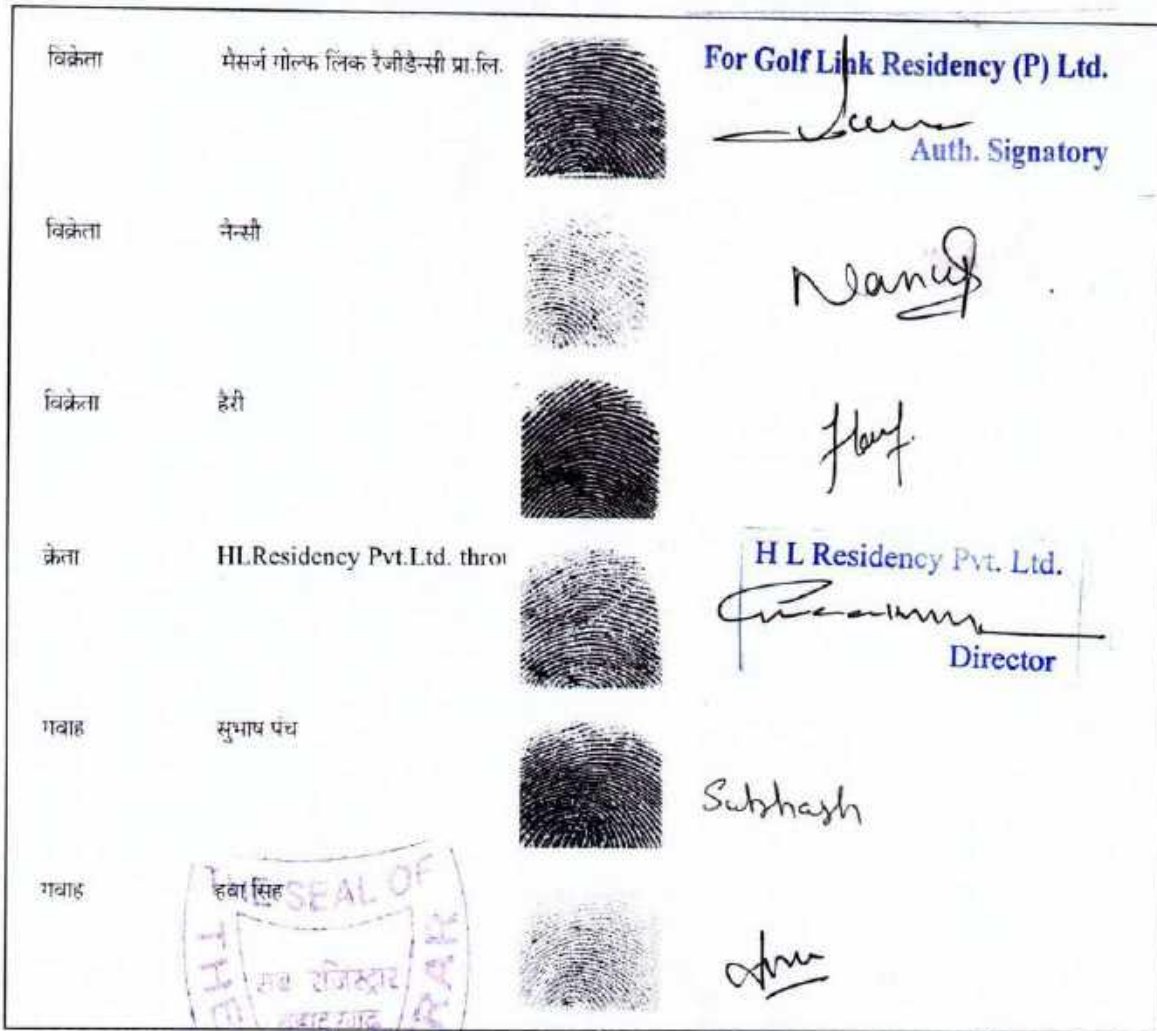 विक्रेता मैसर्ज गोल्फ लिंक रैजीडैन्सी प्रा.लि. For Golf Link Residency (P) Ltd.
Auth. Signatory
विक्रेता नैन्सी Nancy
विक्रेता हैरी
क्रेता HLResidency Pvt.Ltd. throu H L Residency Pvt. Ltd.
Director
गवाह सुभाष पंच Subhash
गवाह हवा सिह
THE SEAL OF
सब रजिस्ट्रार